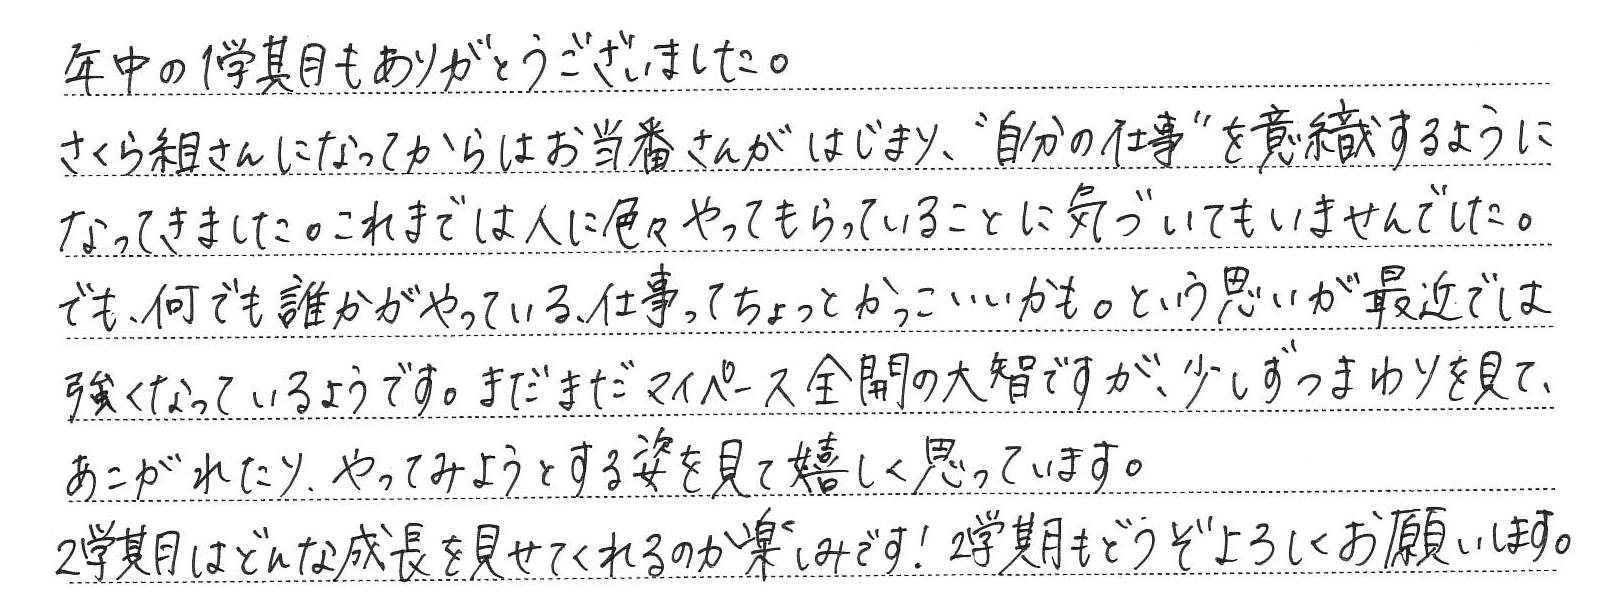 年中の1学期もありがとうございました。
さくら組さんになってからはお当番さんがはじまり、“自分の仕事”を意識するように
なってきました。これまでは人に色々やってもらっていることに気づいてもいませんでした。
でも、何でも誰かがやっている、仕事ってちょっとかっこいいかも。という思いが最近では
強くなっているようです。まだまだマイペース全開の大智ですが、少しずつまわりを見て、
あこがれたり、やってみようとする姿を見て嬉しく思っています。
2学期はどんな成長を見せてくれるのか楽しみです！2学期もどうぞよろしくお願いします。